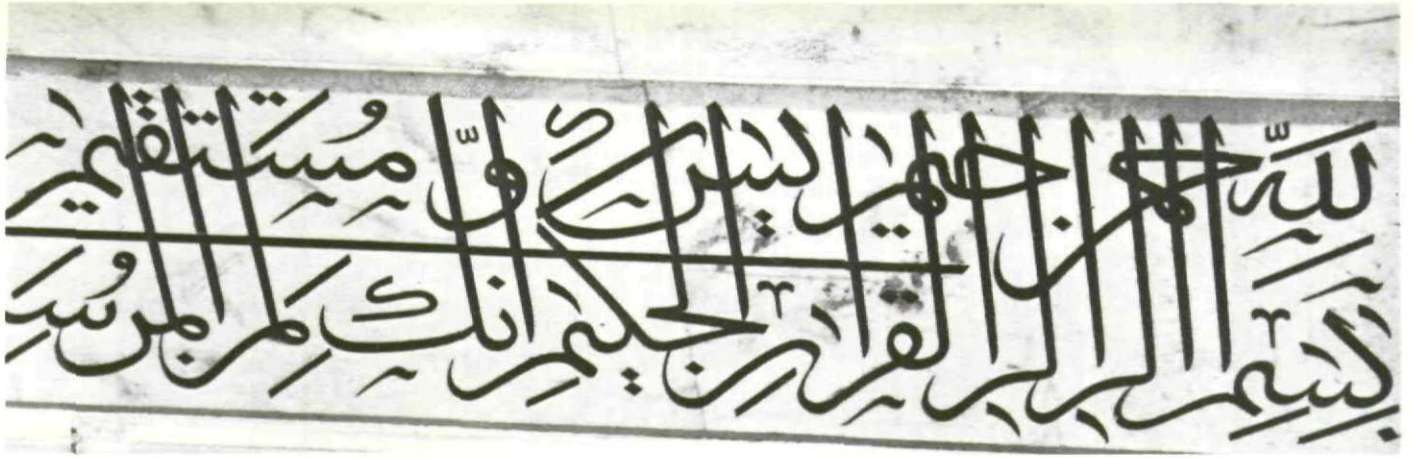 بِسْمِ اللّٰهِ الرَّحْمٰنِ الرَّحِيمِ يٰسٓ وَالْقُرْاٰنِ الْحَكِيمِ اِنَّكَ لَمِنَ الْمُرْسَ
مُسْتَقِيمٍ